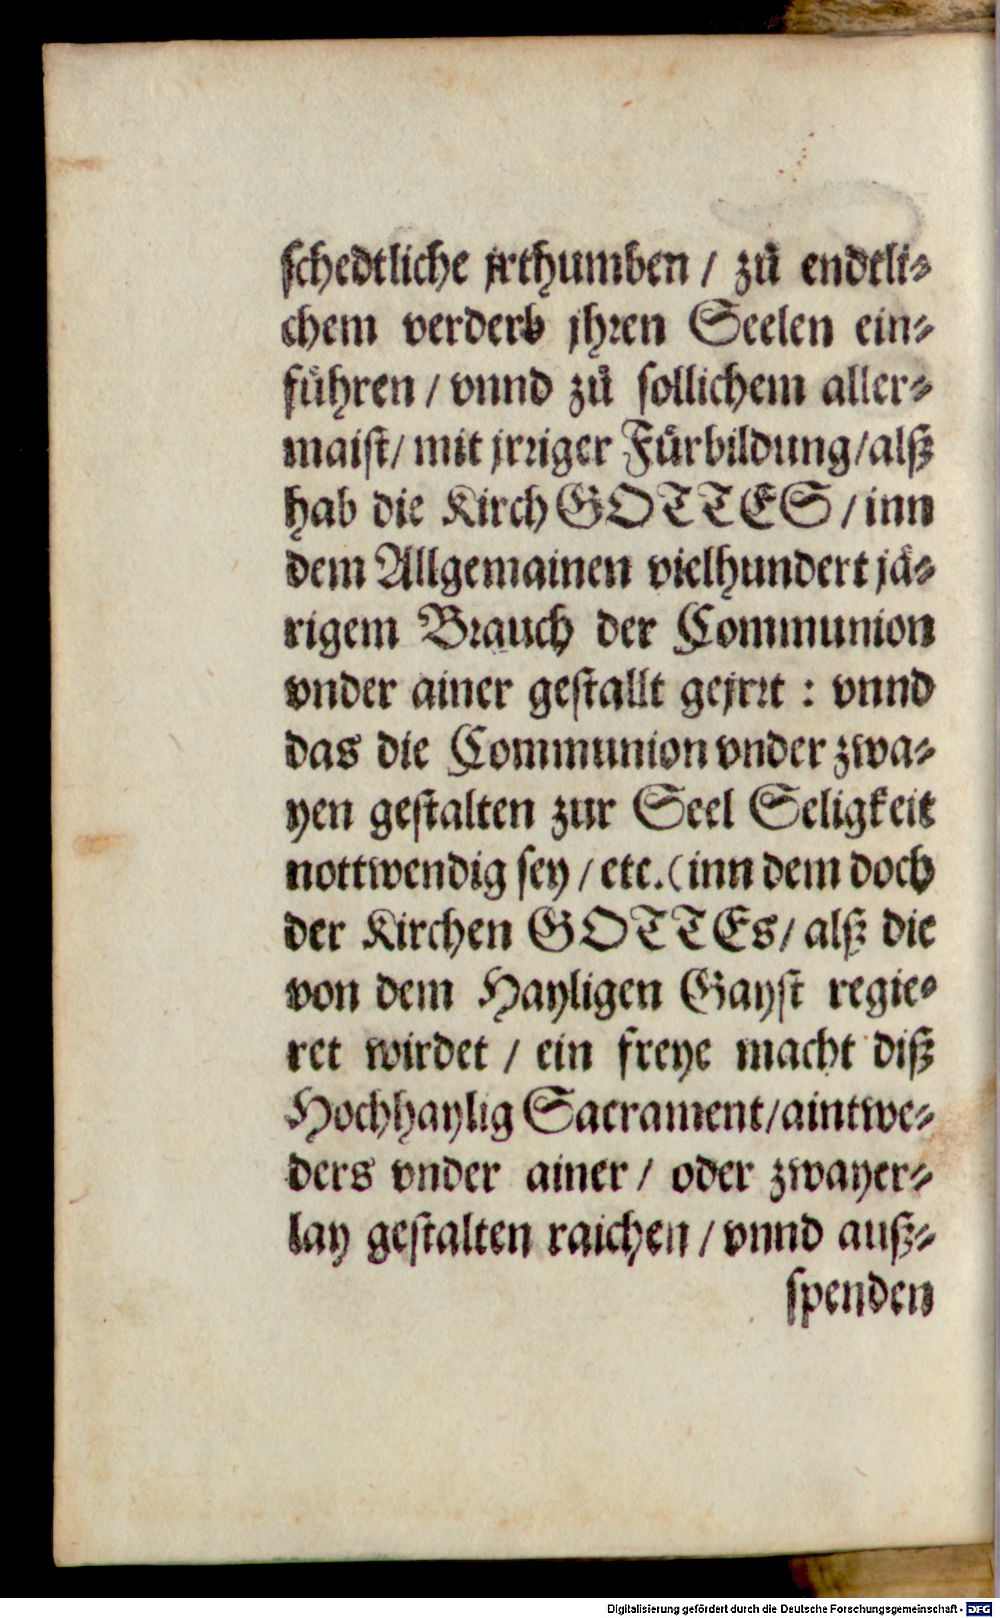 schedtliche jrthumben / zů endtli⸗
chem verderb jhren Seelen ein⸗
führen / vnnd zů sollichem aller⸗
maist / mit jrriger Fürbildung / alß
hab die Kirch GOTTES / inn
dem Allgemainen vielhundert jä⸗
rigem Brauch der Communion
vnder ainer gestallt gejrrt : vnnd
das die Communion vnder zwa⸗
yen gestalten zur Seel Seligkeit
nottwendig sey / etc. (inn dem doch
der Kirchen GOTTEs / alß die
von dem Hayligen Gayst regie⸗
ret wirdet / ein freye macht diß
Hochhaylig Sacrament / aintwe⸗
ders vnder ainer / oder zwayer⸗
lay gestalten raichen / vnnd auß⸗
spenden
Digitalisierung gefördert durch die Deutsche Forschungsgemeinschaft - DFG